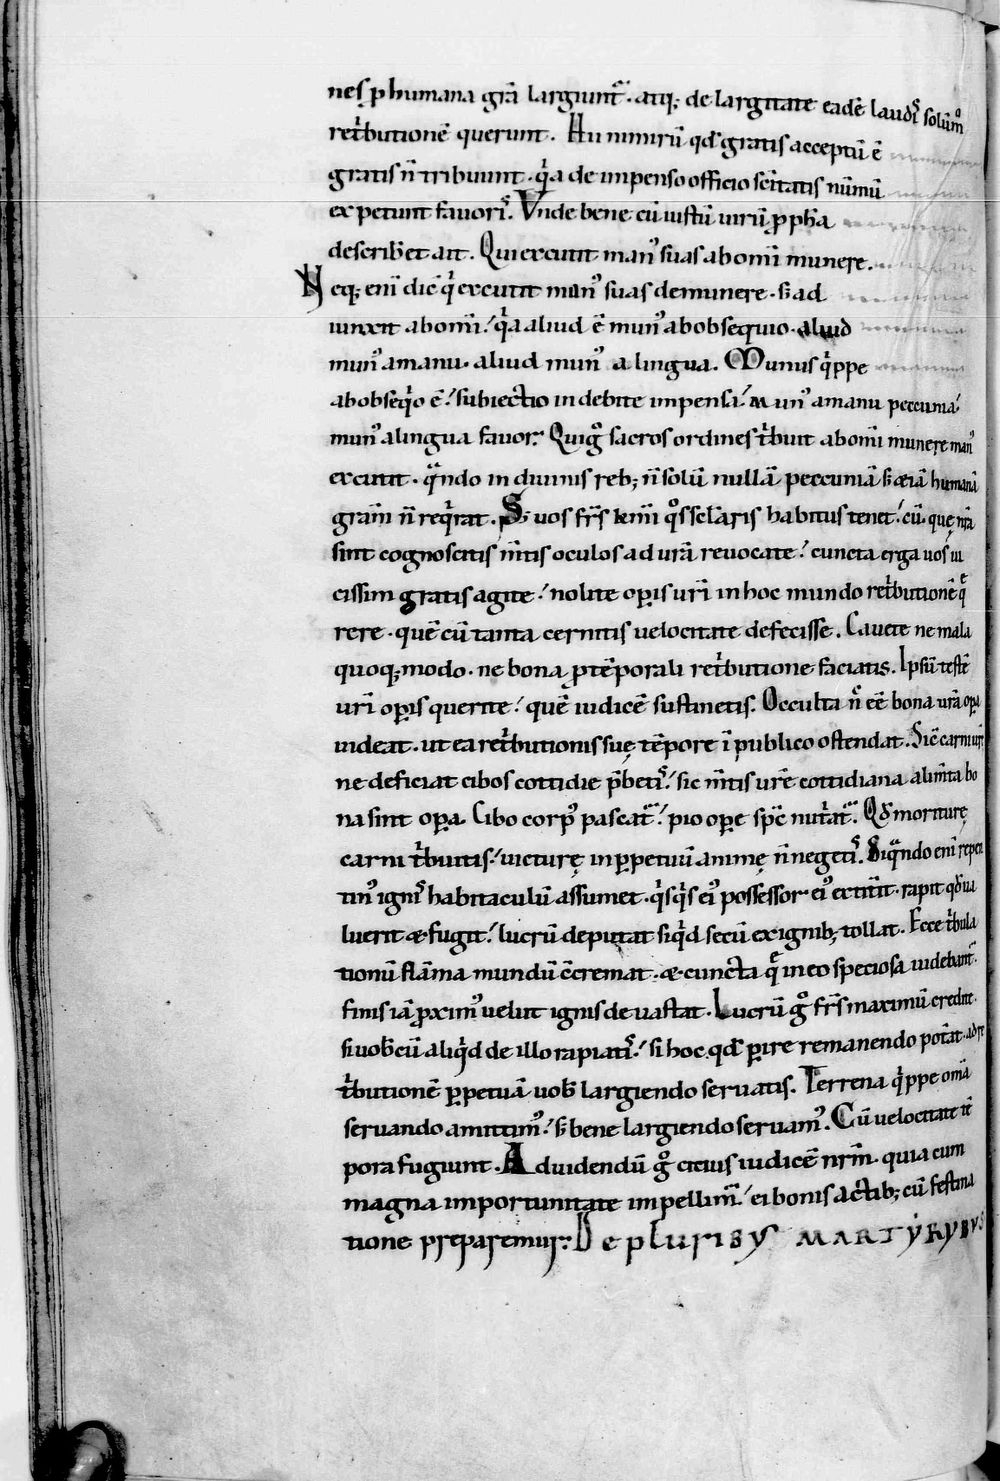 nes ꝑ humana gr̄a largiunt᷑ . atq; de largitate eadē laudis solūmo
retͥbutionē querunt . Hii nimirū qd̄ gratis acceptū ē
gratis n̄ tribuunt . qͥa de impenso officio sc̄itatis nūmū
expetunt fauoris . Vnde bene cū iustū uirū ꝓph̄a
describ̄et ait . Qui excutit man᷒ suas ab om̄i munere .
Neq; eni̅ dic̄ qͥ excutit man᷒ suas de munere . s; ad
iunxit ab om̄i / qͥa aliud ē mun᷒ ab obsequio . aliud
mun᷒ a manu . aliud mun᷒ a lingua . Munus qͥppe
ab obseqͥo ē / subiectio indebite impensa / mun᷒ a manu peccunia /
mun᷒ a lingua fauor : Qui gͦ sacros ordines tͥbuit ab om̄i munere man᷒
excutit . qᷓndo in diuinis reb; n̄ solū nullā peccuniā s; &iā humanā
gr̄am n̄ reqͥrat . S; uos fr̄s km̄i qͦs sclaris habitus tenet / cū . que nr̄a
sint cognoscitis m̄tis oculos ad urā reuocate / cuncta erga uos ui
cissim gratis agite / nolite oꝑis uri̅ in hoc mundo retͥbutionē que
rere . quē cū tanta cernitis uelocitate defecisse . Cauete ne mala
quoq; modo . ne bona ꝓ tēporali retͥbutione faciatis . Ipsū testē
uri̅ oꝑis querite / quē iudicē sustinetis . Occulta n̄ eē bona urā oꝑa
uideat . ut ea retͥbutionis suę tēpore ī publico ostendat . Sic̄ carni ur̄e
ne deficiat cibos cottidie p̄betis / sic m̄tis ur̄e cottidiana alim̄ta bo
na sint oꝑa . Cibo corp᷒ pascat᷑ / pio oꝑe sp̄c nutͥat᷑ . Qd̄ moriturę
carni tͥbuitis / uicturę in ꝑpetuū animę n̄ negetis . Siqᷓndo eni̅ repen
tin᷒ ignis habitaculū assumet . qͥsqͥs ei᷒ possessor ei᷒ extit̄it . rapit qd̄ ua
luerit & fugit / lucrū deputat siqͥd secū ex ignib; tollat . Ecce tͥbula
tionū flāma mundū c̄cremat . & cuncta q̄ in eo speciosa uidebant᷑ .
finis iā ꝓxim᷒ uelut ignis deuastat . Lucrū gͦ fr̄s maximū credite .
si uobcū aliqͥd de illo rapiatis / si hoc . qd̄ ꝑire remanendo pot̄at . ad re
tͥbutionē ꝑpetuā uob̄ largiendo seruatis . Terrena qͥppe omīa
seruando amittim᷒ / s; bene largiendo seruam᷒ . Cū uelocitate tē
pora fugiunt . Ad uidendū gͦ citius iudicē nr̄m . quia cum
magna importunitate impellim᷑ / ei bonis actib; cū festina
tione preparemur : De pluribus martyrybus